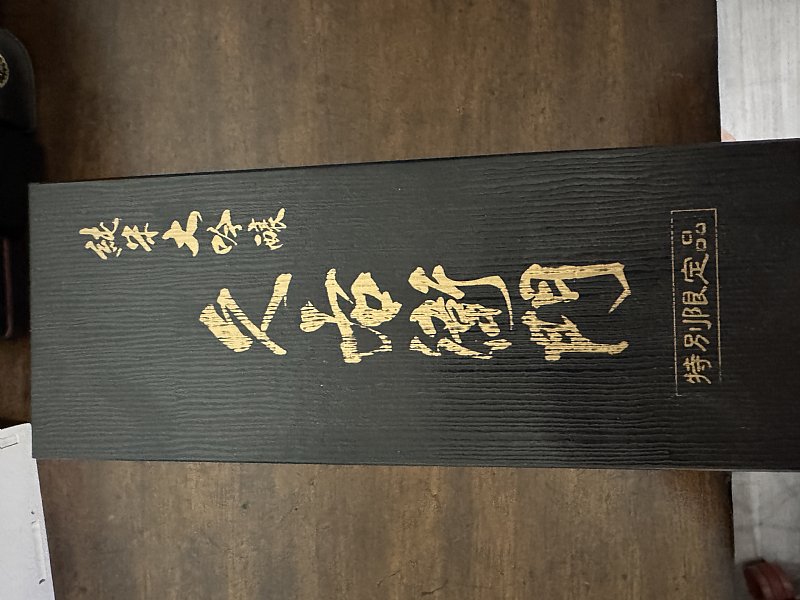 純米大吟醸
久右衛門
特別限定品